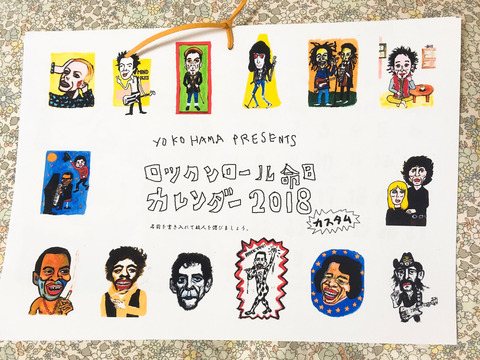 YOKO HAMA PRESENTS
ロックンロール命日
カレンダー2018
カスタム
名前を書き入れて故人を偲びましょう。